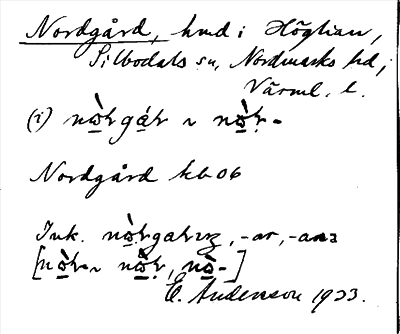 Nordgård, hmd i Höglian,
Silbodals sn, Nordmarks hd,
Värml. l.
(i) nòrgár ~ nòr-
Nordgård kb 06
Ink. nòrgarɩz, -ar, -ana
[nòr- ~ nòr, nò-]
E. Andersson 1933.